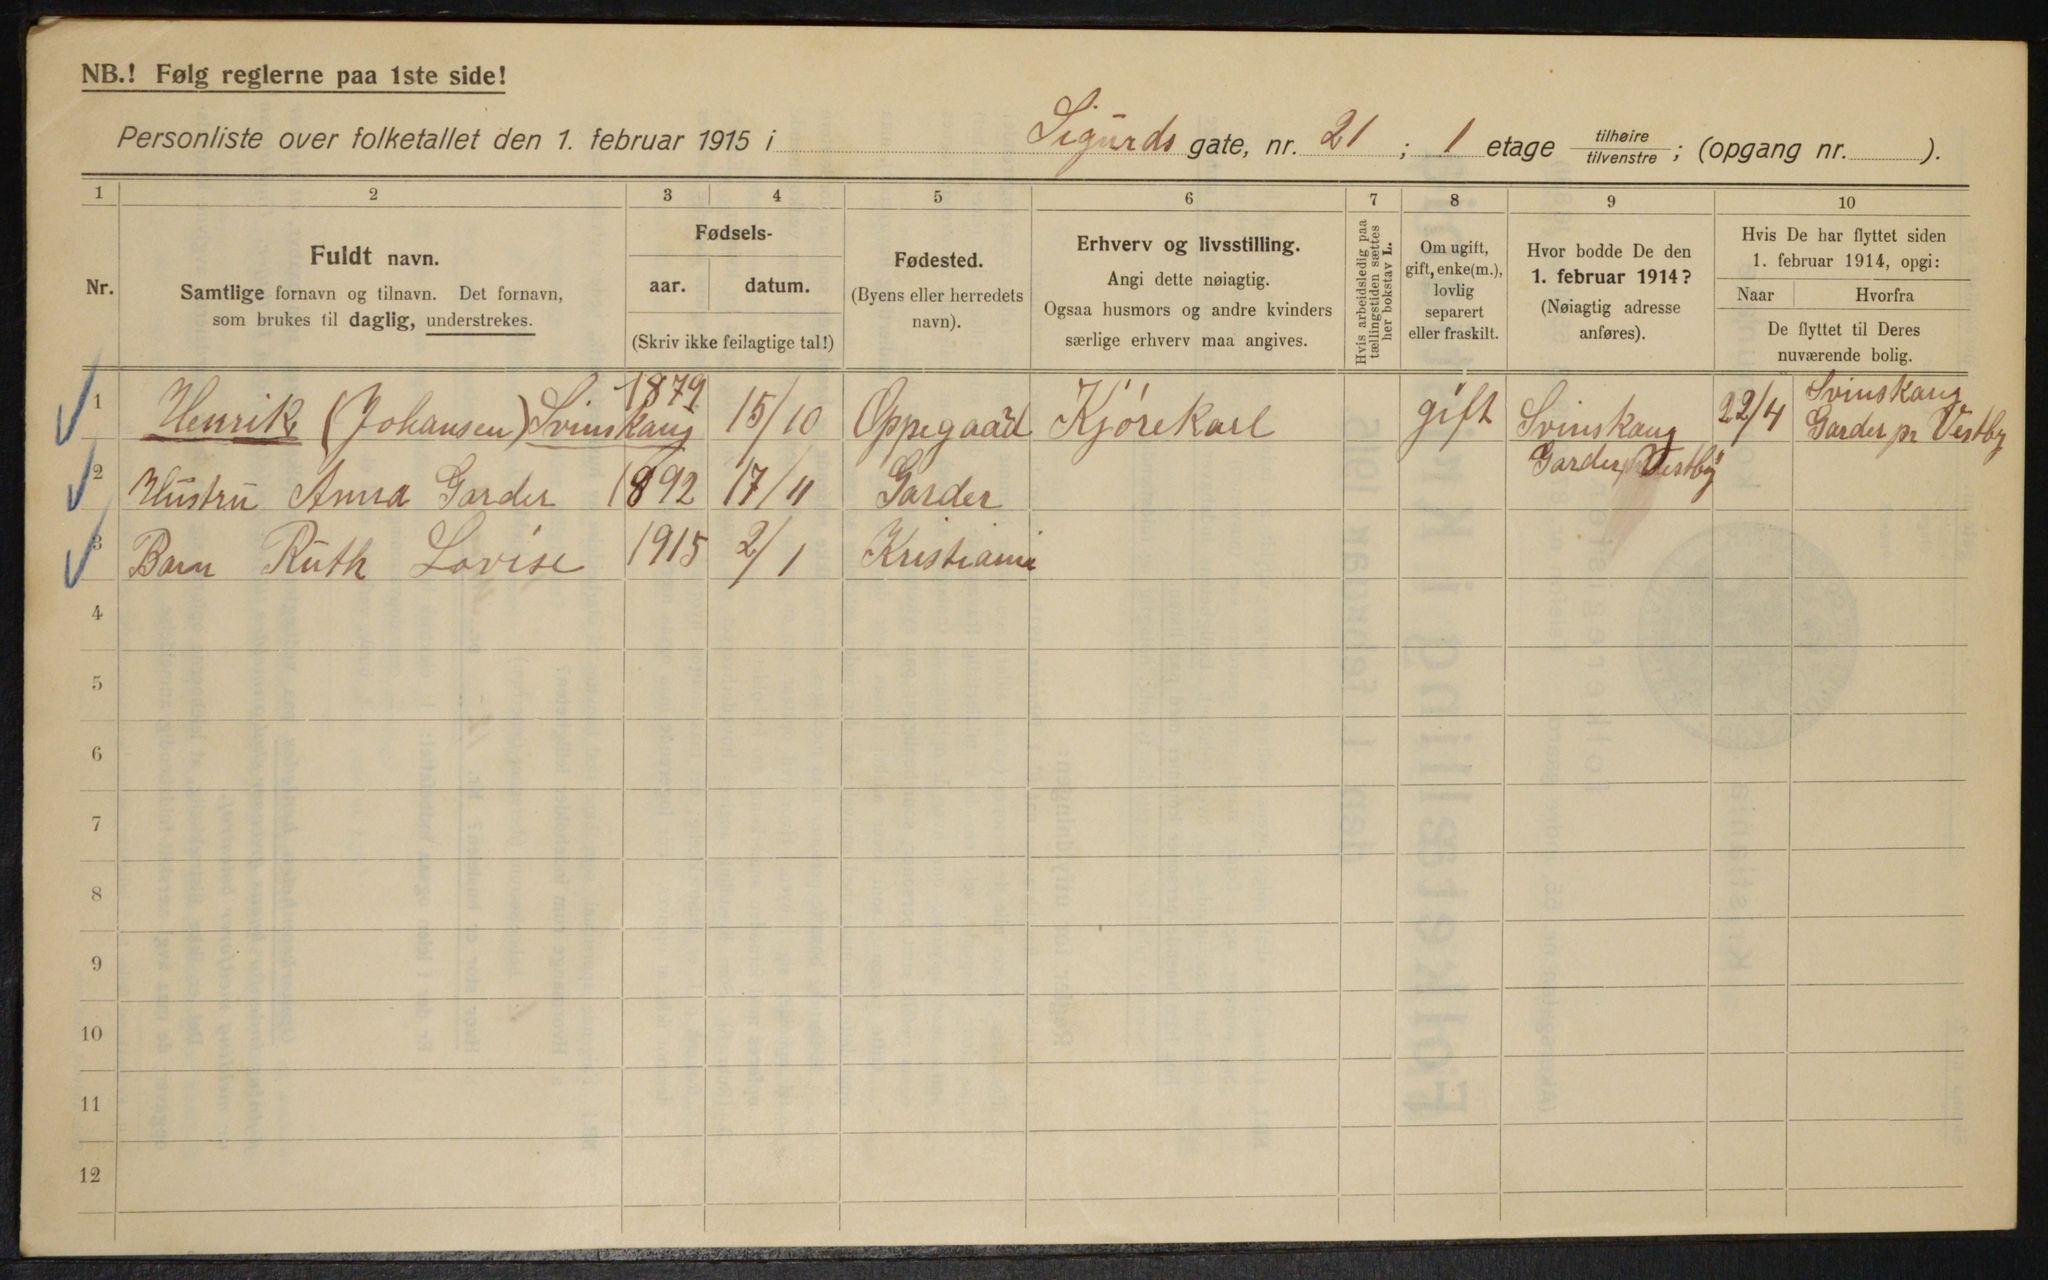 NB.! Følg reglerne paa 1ste side!
Personliste over folketallet den 1. februar 1915 i Sigurds gate, nr. 21 ; 1 etage tilhøire/tilvenstre ; (opgang nr. ).
1 2 3 4 5 6 7 8 9 10
Nr.
Fuldt navn.
Samtlige fornavn og tilnavn. Det fornavn,
som brukes til daglig, understrekes.
Fødsels-
aar. datum.
(Skriv ikke feilagtige tal!)
Fødested.
(Byens eller herredets
navn).
Erhverv og livsstilling.
Angi dette nøiagtig.
Ogsaa husmors og andre kvinders
særlige erhverv maa angives.
Hvis arbeidsledig paa
tællingstiden sættes
her bokstav L.
Om ugift,
gift, enke(m.),
lovlig
separert
eller fraskilt.
Hvor bodde De den
1. februar 1914?
(Nøiagtig adresse
anføres).
Hvis De har flyttet siden
1. februar 1914, opgi:
Naar Hvorfra
De flyttet til Deres
nuværende bolig.
1 Henrik (Johansen) Svinskaug 1879 15/10 Oppegaard Kjørekarl gift Svinskaug 22/4 Svinskaug
Garder pr Vestby Garder pr Vestby
2 Hustru Anna Garder 1892 17/11 Garder
3 Barn Ruth Lovise 1915 2/1 Kristiania
4
5
6
7
8
9
10
11
12